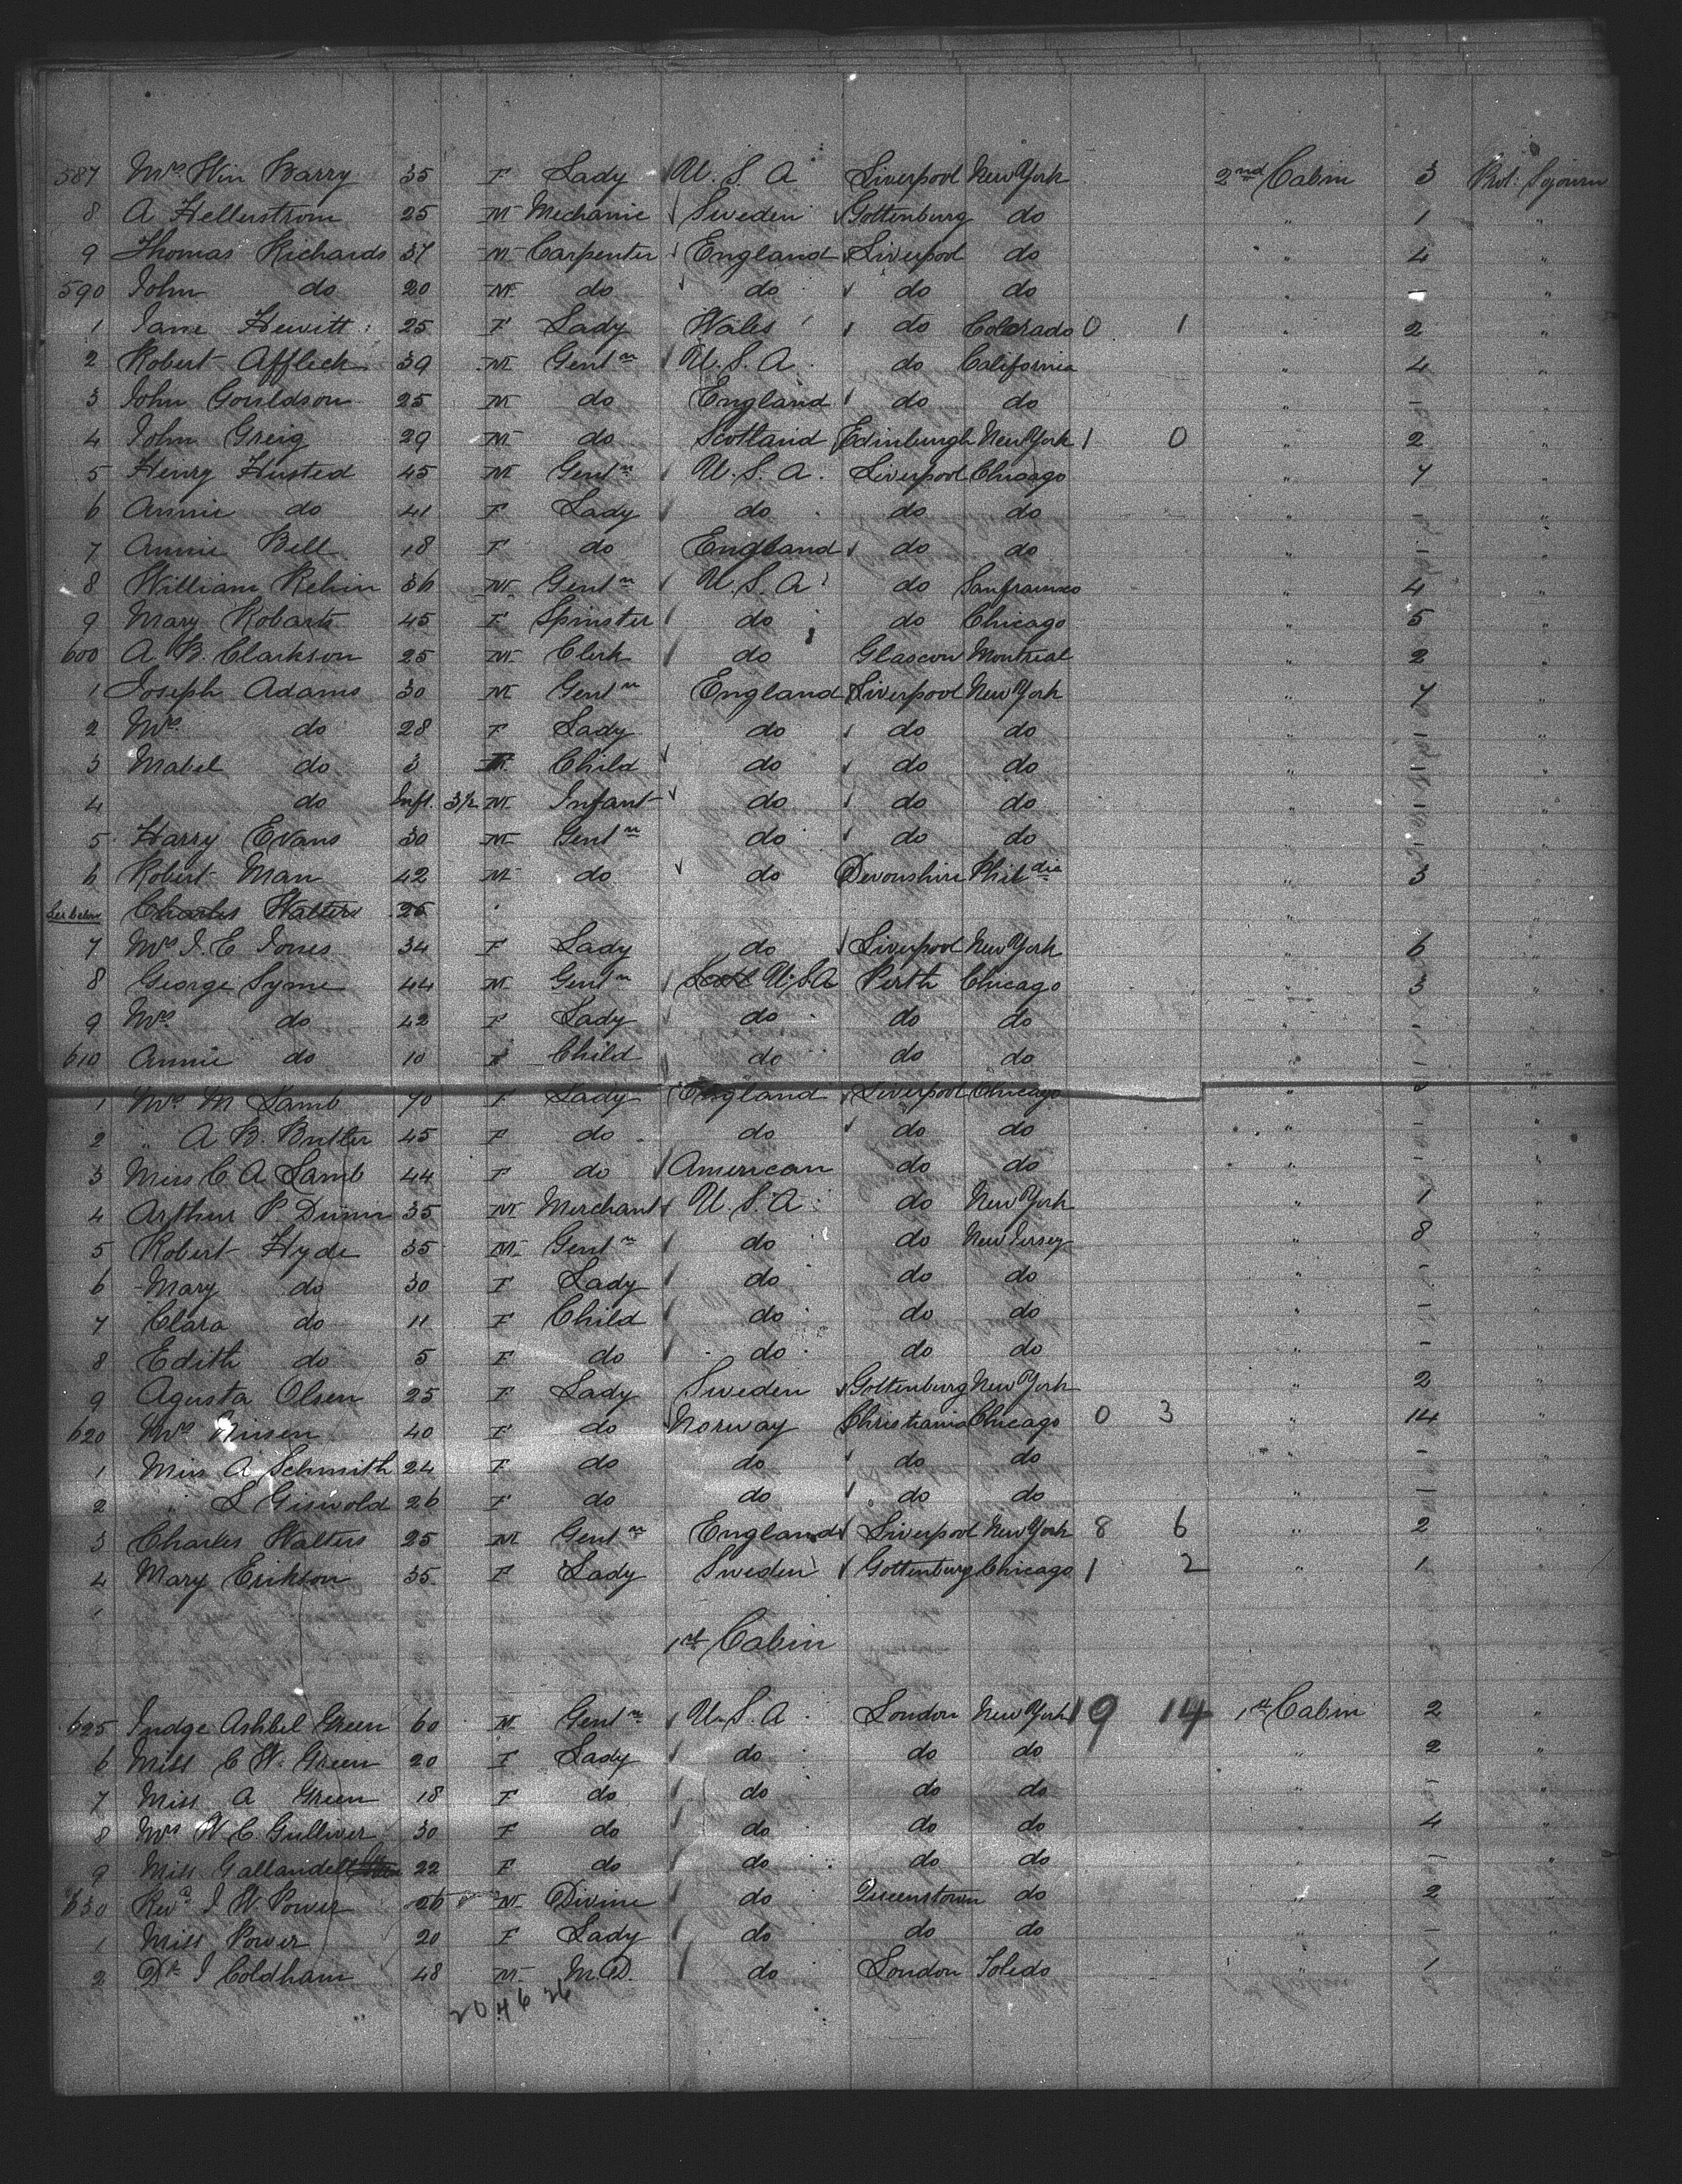 587 Mrs Win Barry 35 F Lady U.S.A. Liverpool New York 2nd Cabin 3 Prot. Sojourn
8 A Hellerstrom 25 M Mechanic Sweden Gottenburg do " 1 "
9 Thomas Richards 37 M Carpenter England Liverpool do " 4 "
590 John do 20 M do do do do " - "
1 Jane Hewitt 25 F Lady Wales do Colorado 0 1 " 2 "
2 Robert Affleck 39 M Gentn U.S.A. do California " 4 "
3 John Gouldson 25 M do England do do " - "
4 John Greig 29 M do Scotland Edinburgh New York 1 0 " 2 "
5 Henry Husted 45 M Gentn U.S.A. Liverpool Chicago " 7 "
6 Annie do 41 F Lady do do do " - "
7 Annie Bell 18 F do England do do " - "
8 William 36 M Gentn U.S.A. do Sanfrancisco " 4 "
9 Mary Robarts 45 F Spinster do do Chicago " 5 "
600 A. B. Clarkson 25 M Clerk do Glascow Montreal " 2 "
1 Joseph Adams 30 M Gentn England Liverpool New York " 7 "
2 Mrs do 28 F Lady do do do " - "
3 Mabel do 3 F Child do do do " - "
4 do Inft. 3/12 M Infant do do do " - "
5 Harry Evans 30 M Gentn do do do " - "
6 Robert Man 42 M do do Devonshire Phildia " 3 "
See below Charles Walters 25 "
7 Mrs J. E Jones 34 F Lady do Liverpool New York " 6 "
8 George Syme 44 M Gentn Scot U.S.A Perth Chicago " 3 "
9 Mrs do 42 F Lady do do do " - "
610 Annie do 10 F Child do do do " - "
1 Mrs M Lamb 70 F Lady England Liverpool Chicago " "
2 " A. B. Butler 45 F do do do do " - "
3 Miss C A Lamb 44 F do American do do " - "
4 Arthur P. Dunn 35 M Merchant U.S.A. do New York " 1 "
5 Robert Hyde 35 M Gentn do do New Jersey " 8 "
6 Mary do 30 F Lady do do do " - "
7 Clara do 11 F Child do do do " - "
8 Edith do 5 F do do do do " - "
9 Agusta Olsen 25 F Lady Sweden Gottenburg New York " 2 "
620 Mrs 40 F do Norway Christiania Chicago 0 3 " 14 "
1 Miss A Schmith 24 F do do do do " - "
2 " S Giswold 26 F do do do do " - "
3 Charles Walters 25 M Gentn England Liverpool New York 8 6 " 2 "
4 Mary Erikson 35 F Lady Sweden Gottenburg Chicago 1 2 " 1 "
1st Cabin
625 Judge Ashbel Green 60 M Gentn U.S.A. London New York 19 14 1st Cabin 2 "
6 Miss C W. Green 20 F Lady do do do " 2 "
7 Miss A Green 18 F do do do do " - "
8 Mrs W C Gulliver 30 F do do do do " 4 "
9 Miss Gallandett 22 F do do do do " - "
630 Revd J W Power 26 M Divine do Queenstown do " 2 "
1 Miss Power 20 F Lady do do do " - "
2 Dr J Coldham 48 M M.D. do London Toledo " 1 "
20 46 26